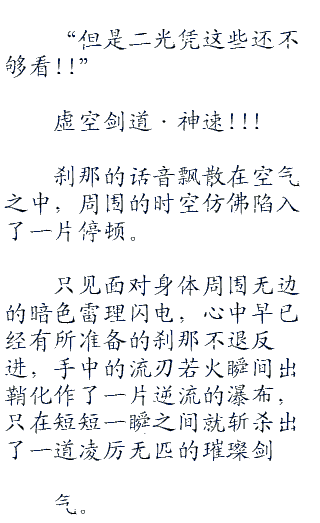 “但是二光凭这些还不
够看!!”
虚空剑道·神速!!!
刹那的话音飘散在空气
之中，周围的时空仿佛陷入
了一片停顿。
只见面对身体周围无边
的暗色雷理闪电，心中早已
经有所准备的刹那不退反
进，手中的流刃若火瞬间出
鞘化作了一片逆流的瀑布，
只在短短一瞬之间就斩杀出
了一道凌厉无匹的璀璨剑
气。